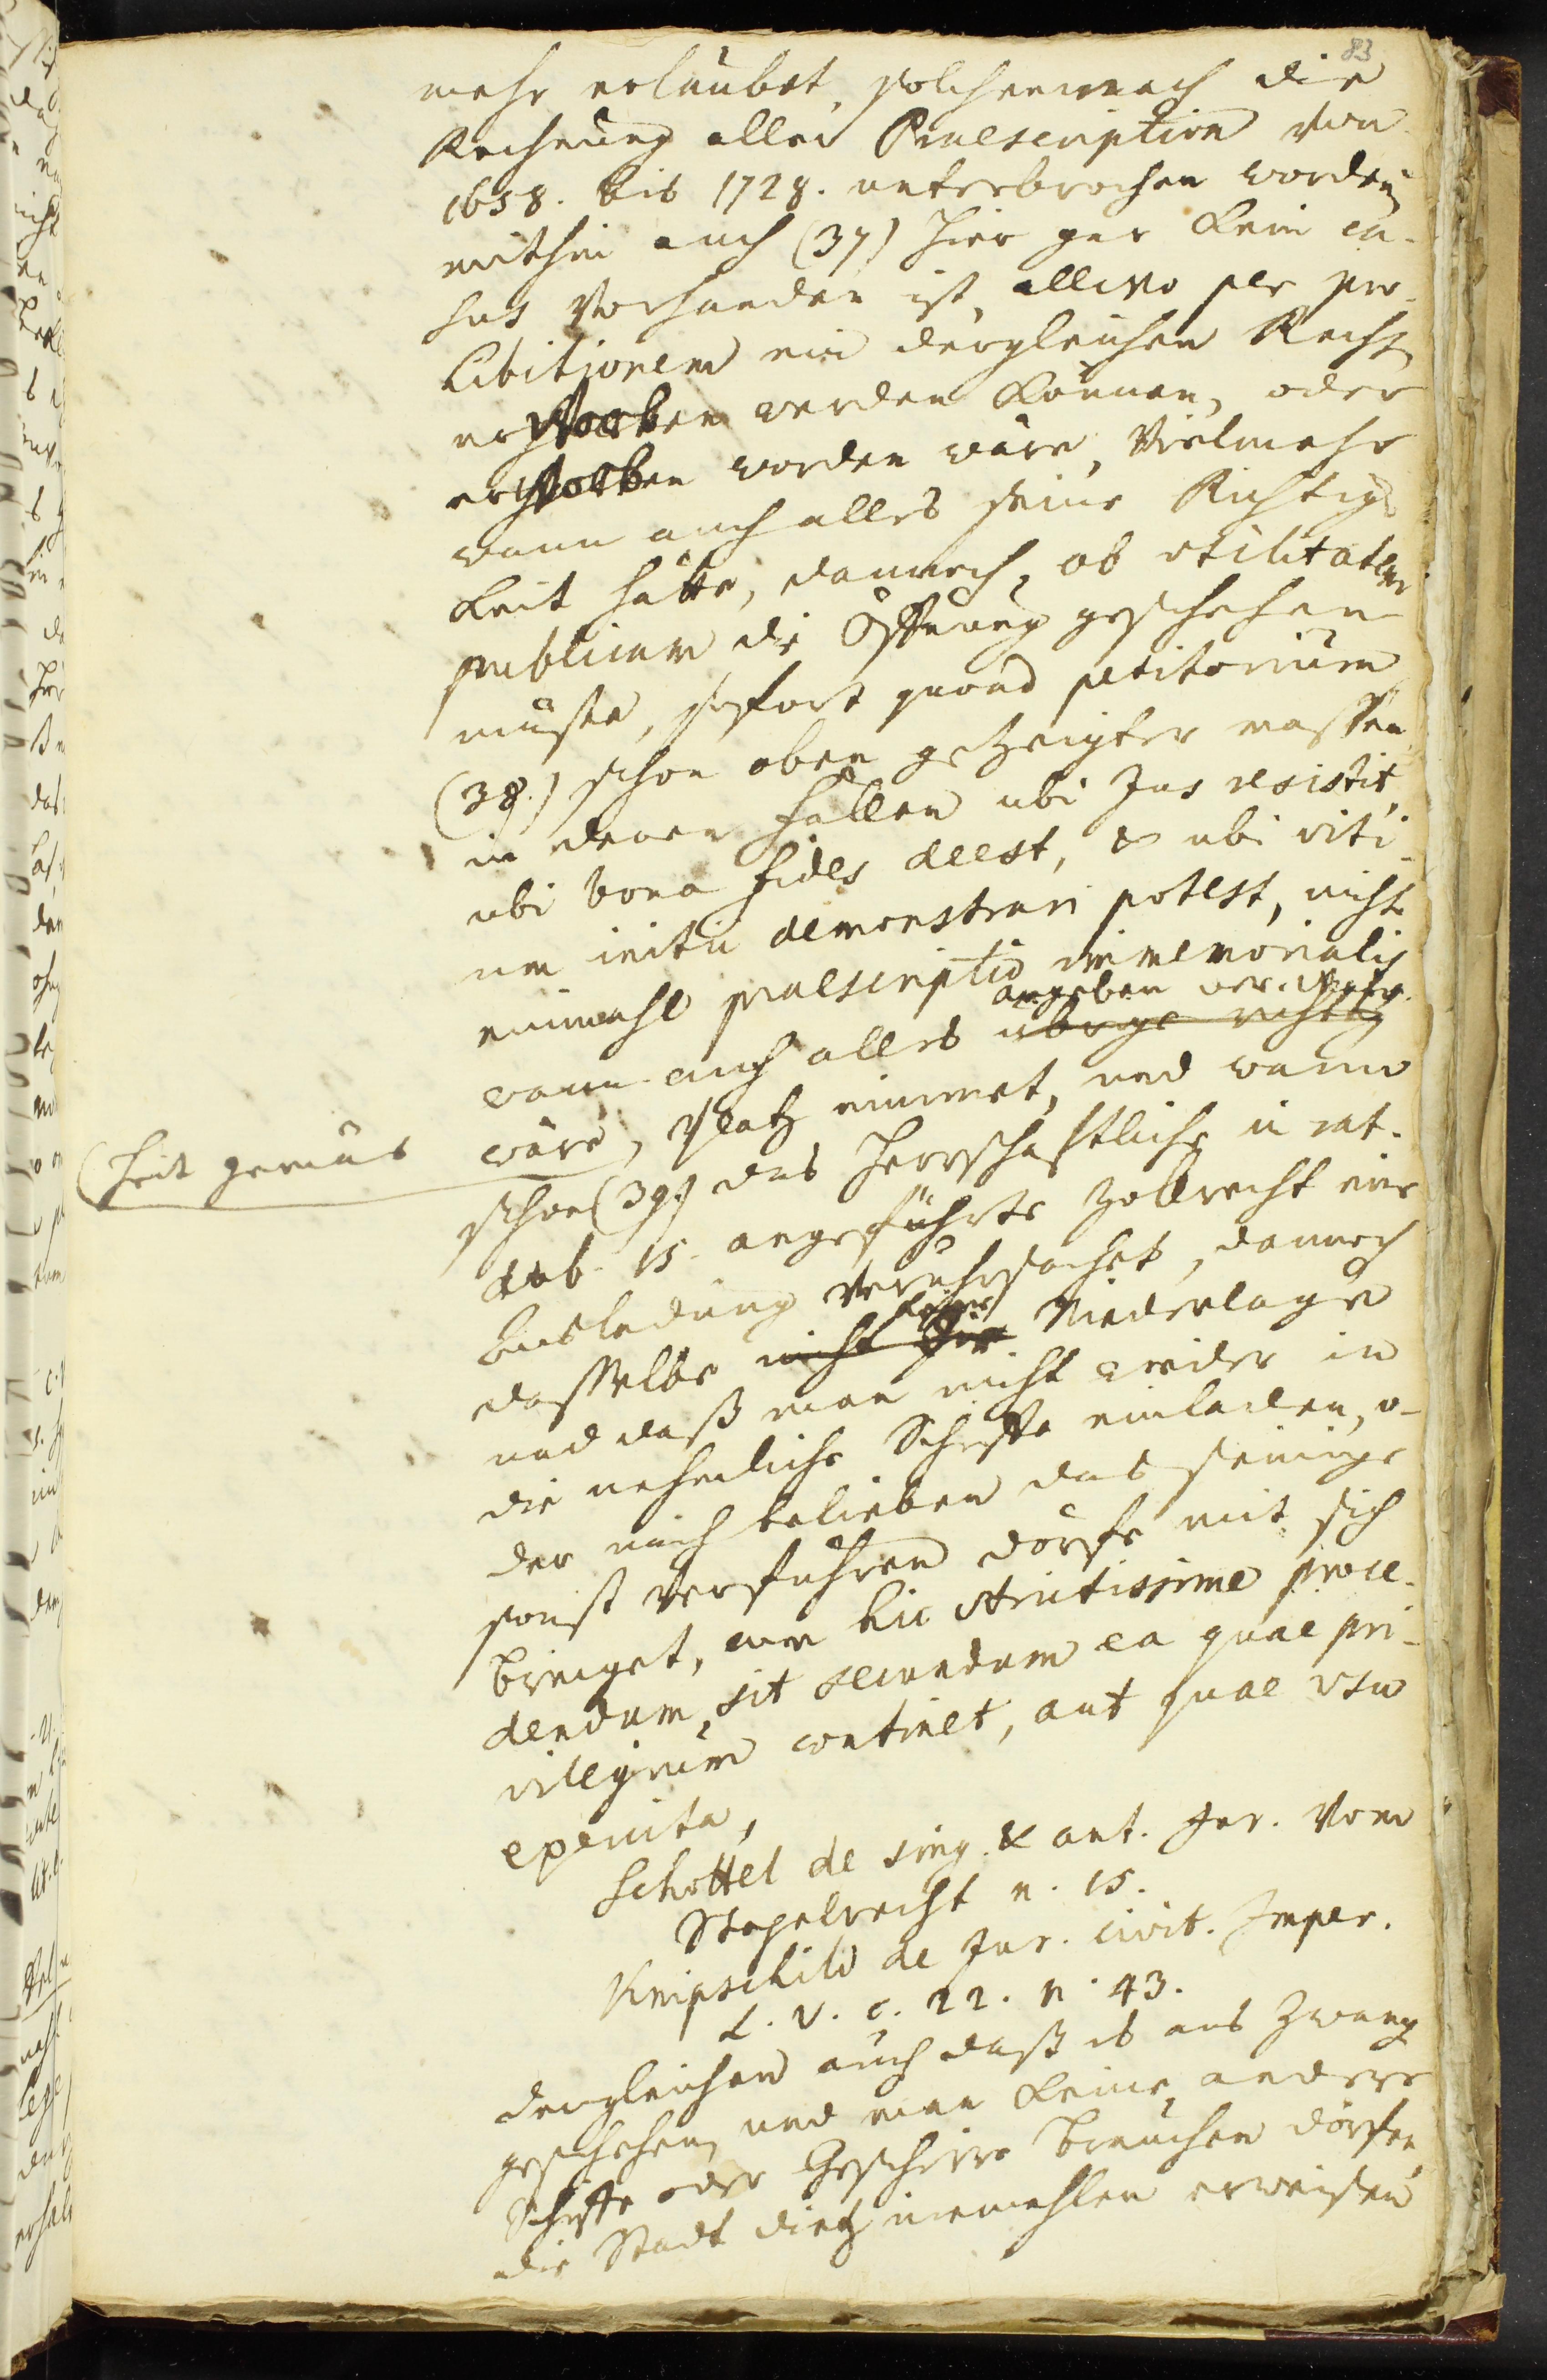 83
mehr erlaubet, solchemnach die
Rechnung aller Praescription von
1658. bis 1728. unterbrochen worden,
mithin auch (37) hier gar kein ca-
sus vorhanden ist, allwo per pro-
hibitionem ein dergleichen Recht
erworben werden können, oder
erworben worden wäre, Vielmehr
wann auch alles seine Richtig-
keit hätte, dannoch, ob utilitatem
publicam die Öffnung geschehen
müste, sofort quoad petitorium
(38.) schon oben gezeigter massen
in denen Fällen ubi Jus resistit,
ubi bona fides deest, & ubi viti-
um initii demonstrari potest, nicht
einmahl praescriptio immemorialis
angeben der
wann auch alles übrige richtig
(heit gemäs
wäre, Platz nimmet, und wann
schon (39.) das Herrschaftliche in rat.
dub. 15. angeführte Zollrecht eine
Ausladung verursachet, dannoch
keine
dasselbe nicht die Niederlage
und daß man nicht wieder in
die nehmliche Schiffe einladen, o-
der nach belieben das seinige
sonst verführen dörfe mit sich
bringet, cum hic strictissime proce-
dendum, sit secundum ea quae pri-
vilegium continet, aut quae usu
epenita,
Schottel de sing. & ant. Jur. Vom
Stapelrecht n. 15.
Knipschild de Jur. Civit. Imper.
L. V. c. 22. n. 43.
dergleichen auch daß es aus Zwang
geschehen, und man keine andere
Schiffe oder Geschirre brauchen dörfen,
die Stadt Dietz niemahlen erweisen